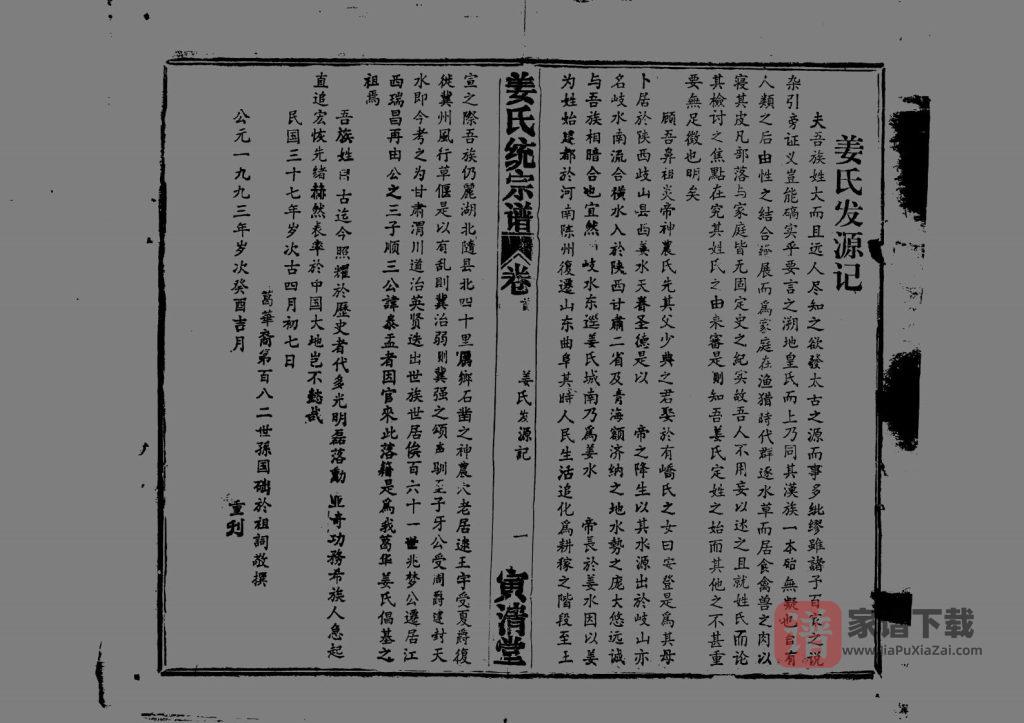 姜氏发源记
夫吾族姓大而且远人尽知之欲發太古之源而事多紕缪雖諸子百氏之说
杂引旁证义豈能碻实乎要言之溯地皇氏而上乃同其漢族一本殆無疑也台有
人類之后由性之结合發展而爲家庭在渔猎時代群逐水草而居食禽兽之肉以
寝其皮凡部落与家庭皆无固定史之纪实故吾人不用妄以述之且就姓氏而论
其檢讨之焦點在究其姓氏之由來審是則知吾姜氏定姓之始而其他之不甚重
要無足徵也明矣
顾吾鼻祖炎帝神農氏先其父少典之君娶於有蟜氏之女曰安登是爲其母
卜居於陕西岐山县西姜水天眷圣德是以 帝之降生以其水源出於岐山亦
名岐水南流合横水入於陕西甘肅二省及青海额济纳之地水勢之庞大悠远诚
与吾族相暗合也宜然 岐水东逕姜氏城南乃爲姜水 帝長於姜水因以姜
为姓始建都於河南陈州復遷山东曲阜其時人民生活追化爲耕稼之階段至王
姜氏统宗谱 卷首 姜氏发源記 一 寅清堂
宣之際吾族仍麗湖北隨县北四十里厲鄉石凿之神農穴老居逮王宇受夏爵復
徙冀州風行草偃是以有乱則冀治弱則冀强之颂 馴至子牙公受周爵建封天
水即今考之为甘肃渭川道治英贤迭出世族世居俟百六十一世兆梦公遷居江
西瑞昌再由公之三子顺三公諱泰孟者因官來此落籍是爲我葛华姜氏倡基之
祖焉
吾族姓自古迄今照耀於歷史者代多光明磊落勳 亚奇功務希族人急起
直追宏恢先緒赫然表率於中国大地岂不懿哉
民国三十七年岁次古四月初七日
葛華裔第百八二世孫国础於祖祠敬撰
公元一九九三年岁次癸酉吉月
重刋
家谱下载
www.JiaPuXiaZai.com